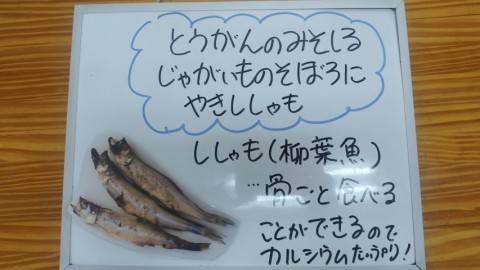 とうがんのみそしる
じゃがいものそぼろに
やきししゃも
ししゃも(柳葉魚)
…骨ごと食べる
ことができるので
カルシウムたっぷり!